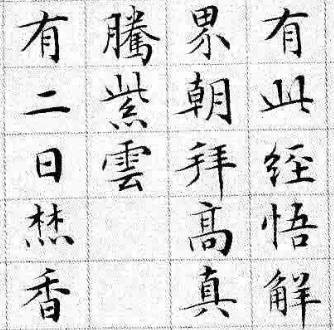 有此经悟解
界朝拜高真
騰紫雲
有二日焚香